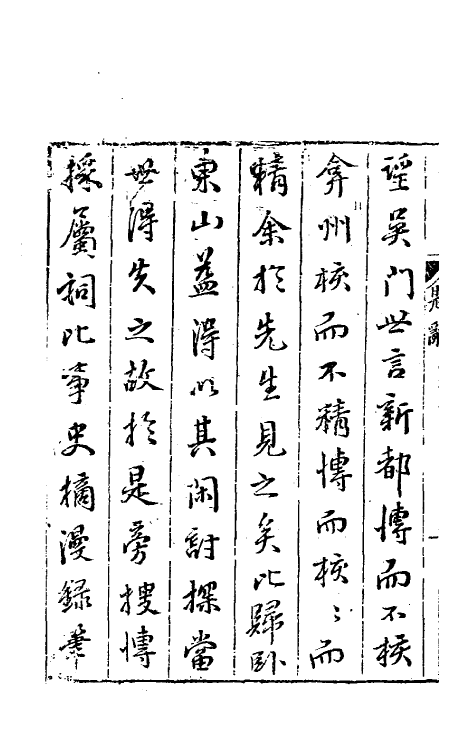 誣吳門世言新都博而不核
弇州核而不精博而核〻而
精余於先生見之矣比歸臥
東山益得以其閑討探當
世得失之故於是旁搜博
採屬詞比事史摘漫錄業